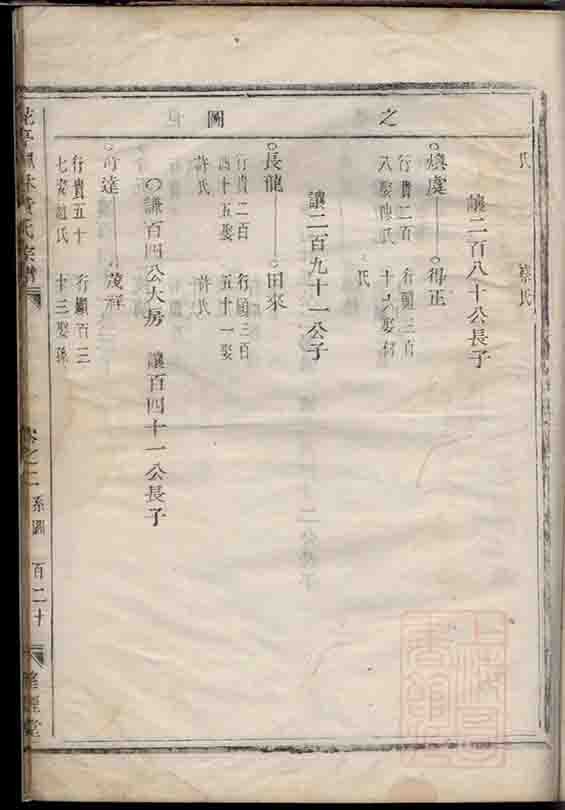 之
圖
氏
蔡氏
讓二百八十公長子
得正
行貴二百
行顯三百
讓二百九十一公子
長龍
田來
行貴二百
行顯三百
四十五娶
五十一娶
許氏
許氏
謙百四公大房
讓百四十一公長子
茂祥
行貴五十
行顯百三
七娶趙氏
十三娶孫
黃氏宗譜
卷之二
系圖
百二十
上海圖書館藏